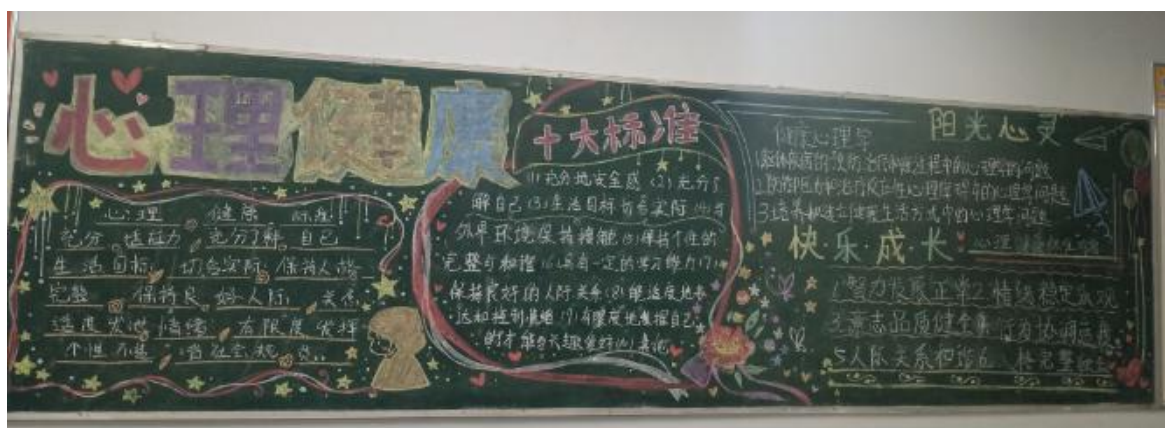 心理健康
心理 健康 标准
充分 适应力 充分了解 自己
生活目标 切合实际 保持人格
完整 保持良 好人际 关系
适度发泄 情绪 有限度发挥
个性不违 背社会规
十大标准
(1)充分地安全感 (2)充分了
解自己 (3)生活目标切合实际 (4)与
外界环境保持接触 (5)保持个性的
完整与和谐 (6)具有一定的学习能力 (7)
保持良好的人际关系 (8)能适度地表
达和控制情绪 (9)有限度地发挥自己
的才能与兴趣爱好 (10)
阳光心灵
健康心理学
过程中的心理学问题
心理学问题
3.培养和 健康生活方式中的心理学问题
快乐·成长
心理
1.智力发展正常 2.情绪稳定乐观
3.意志品质健全 4.行为协调适度
5.人际关系和谐 6.人格完整